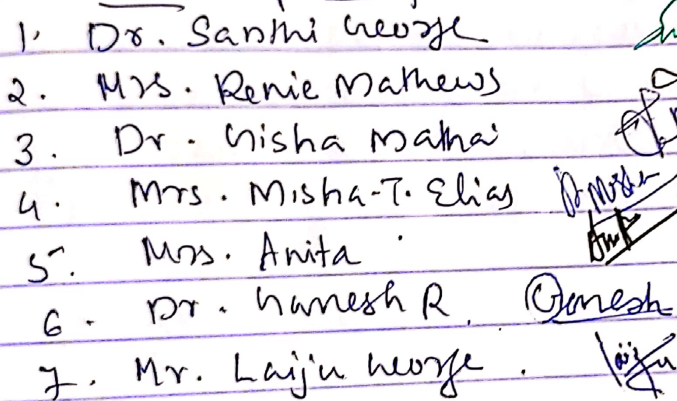 1. Dr. Santhi George
2. Mrs. Renie Mathews
3. Dr. Nisha Mathai
4. Mrs. Misha-T. Elias
5. Mrs. Anita
6. Dr. Ganesh R. Ganesh
7. Mr. Laiju George. Laiju